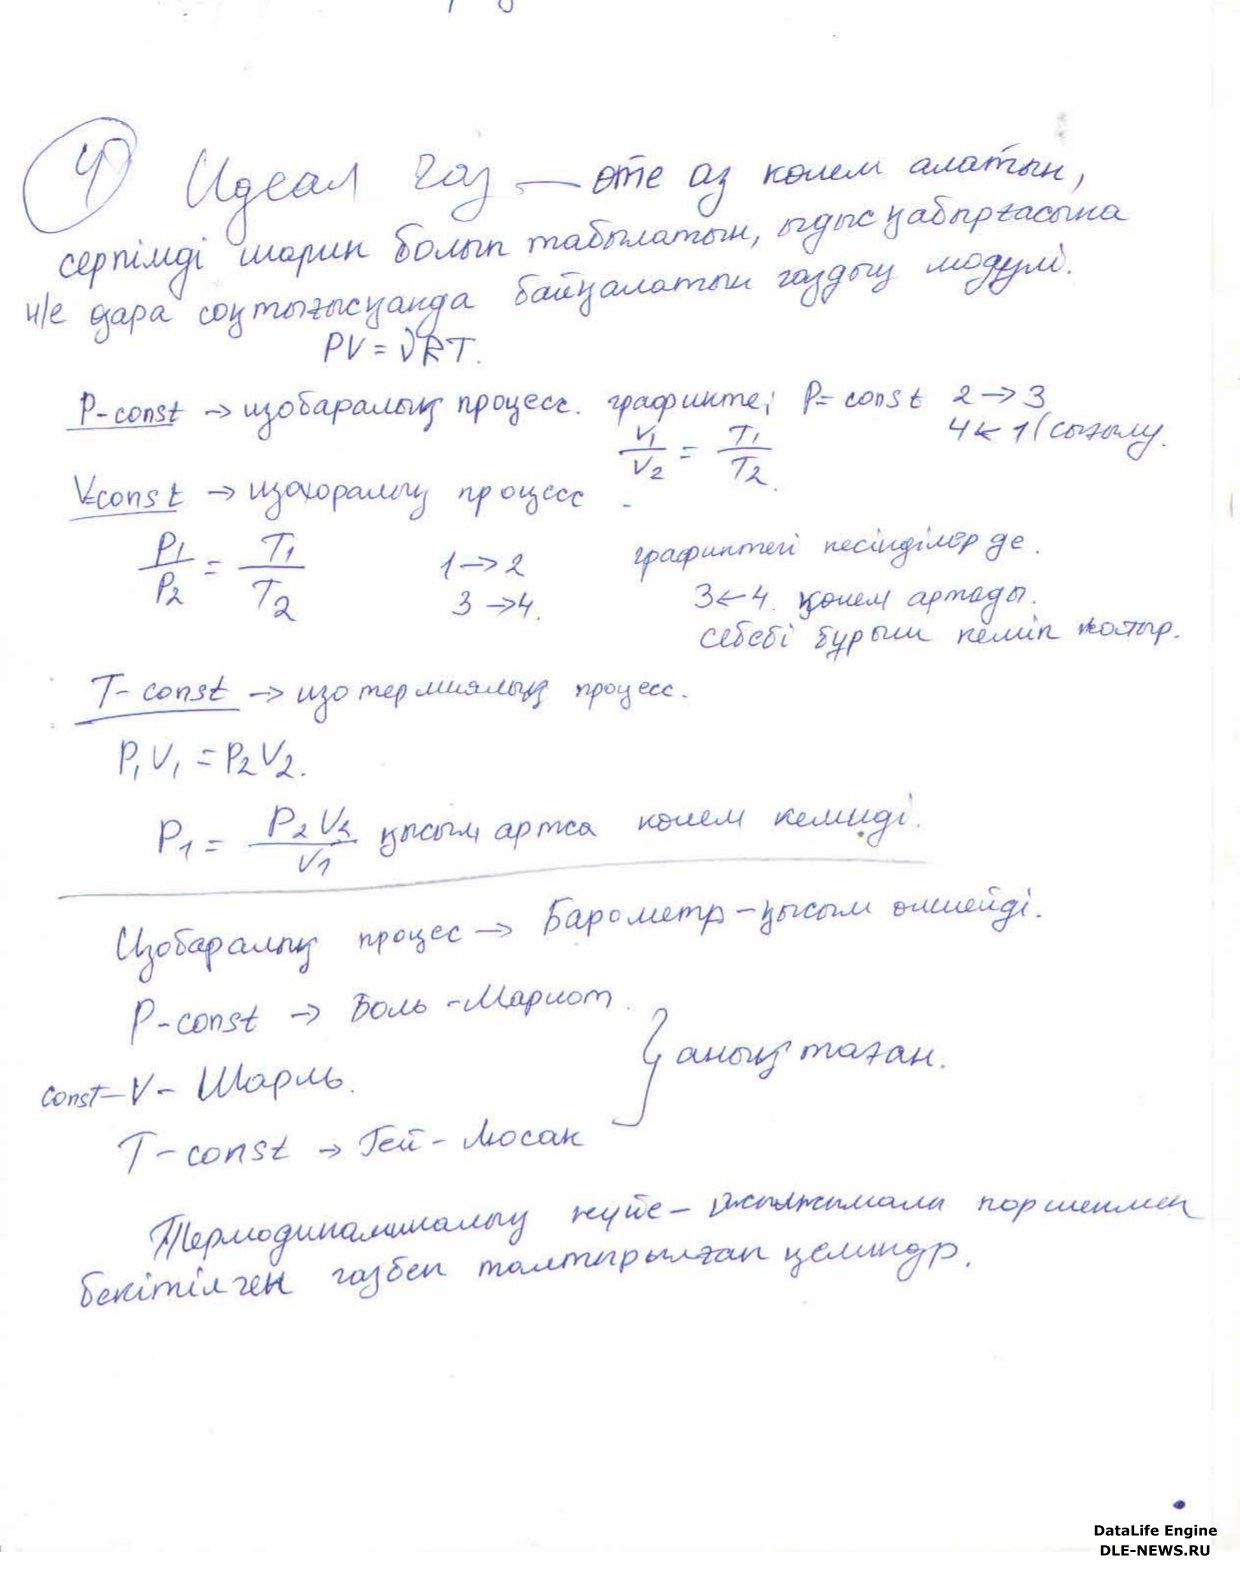 4) Идеал газ — өте аз көлем алатын,
серпімді шарик болып табылатын, ыдыс қабырғасына
н/е өзара соқтығысқанда байқалатын газдың модулі.
PV = √RT.
P-const → изобаралық процесс. графикте; P = const 2 → 3
4 ← 1 (сығылу.
V1/V2 = T1/T2.
V=const → изохоралық процесс -
P1/P2 = T1/T2 1 → 2 графиктегі кесінділер де.
3 → 4. 3 ← 4. көлем артады.
себебі бұрыш кеміп жатыр.
T-const → изотермиялық процесс.
P1V1 = P2V2.
P1 = P2V2/V1 қысым артса көлем кемиді.
Изобаралық процес → Барометр – қысым өлшейді.
P-const → Боль-Мариот.
const-V- Шарль. } анықтаған.
T-const → Гей-Люсак
Термодинамикалық жүйе – жылжымалы поршенмен
бекітілген газбен толтырылған цилиндр.
DataLife Engine
DLE-NEWS.RU